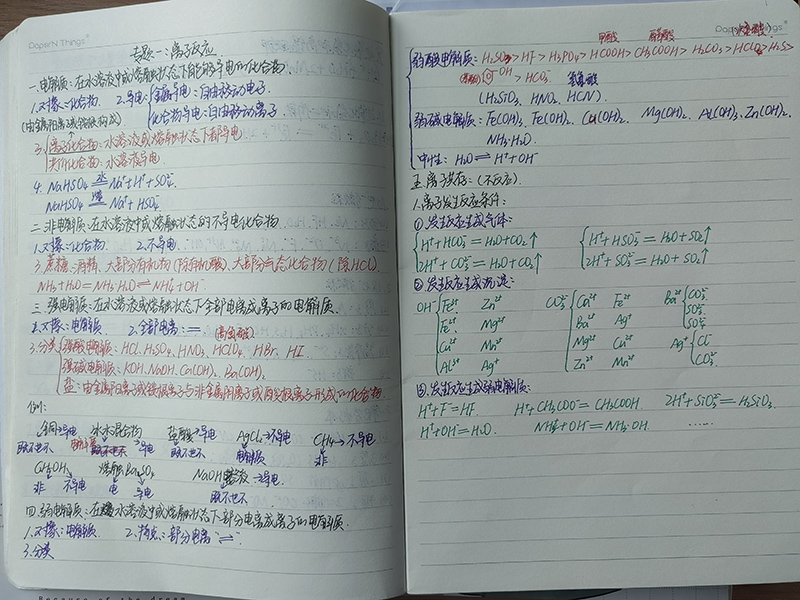 PaperN Things
专题一:离子反应
一.电解质:在水溶液中或熔融状态下能够导电的化合物.
1.对象:化合物. 2.导电 金属导电:自由移动电子.
化合物导电:自由移动离子
(由金属阳离子或铵根构成)
3. 离子化合物:水溶液或熔融状态下都导电
共价化合物:水溶液导电
4. NaHSO4 水 Na⁺+H⁺+SO4²⁻
NaHSO4 熔 Na⁺+HSO4⁻
二.非电解质:在水溶液中或熔融状态时不导电化合物
1.对象:化合物 2.不导电.
3.蔗糖.酒精.大部分有机物(除有机酸).大部分气态化合物(除HCl).
NH3+H2O=NH3·H2O⇌NH4⁺+OH⁻
三.强电解质:在水溶液或熔融状态下全部电离成离子的电解质.
1.对象:电解质 2.全部电离:=
(高氯酸)
3.分类 强酸电解质:HCl.H2SO4.HNO3.HClO4. HBr. HI.
强碱电解质:KOH.NaOH.Ca(OH)2.Ba(OH)2
盐:由金属阳离子或铵根离子与非金属阴离子或酸根离子形成的化合物
例:
铜→导电 冰水混合物 盐酸→导电 AgCl→不导电 CH4→不导电
既不也不 导电 既不也不 电解质 非
C2H5OH 熔融BaSO4 NaOH溶液→导电
非 不导电 电 导电 既不也不
四.弱电解质:在水溶液中或熔融状态下部分电离成离子的电解质
1.对象:电解质 2.特点:部分电离"⇌"
3.分类
Because of the dream
PaperN Things
甲酸 醋酸
弱酸电解质:H2SO3>HF>H3PO4>HCOOH>CH3COOH>H2CO3>HClO>H2S>
OH >HCO3⁻ 氢氰酸
(H2SiO3. HNO2. HCN).
弱碱电解质:Fe(OH)3. Fe(OH)2. Cu(OH)2. Mg(OH)2. Al(OH)3. Zn(OH)2.
NH3·H2O.
中性: H2O⇌H⁺+OH⁻
五.离子共存:(不反应).
1.离子发生反应条件:
①发生反应生成气体:
H⁺+HCO3⁻=H2O+CO2↑ H⁺+HSO3⁻=H2O+SO2↑
2H⁺+CO3²⁻=H2O+CO2↑ 2H⁺+SO3²⁻=H2O+SO2↑
②发生反应生成沉淀:
OH⁻ Fe³⁺ Zn²⁺ CO3²⁻ Ca²⁺ Fe²⁺ Ba²⁺ CO3²⁻
Fe²⁺ Mg²⁺ Ba²⁺ Ag⁺ SO3²⁻
Cu²⁺ Mn²⁺ Mg²⁺ Cu²⁺ SO4²⁻
Al³⁺ Ag⁺ Zn²⁺ Mn²⁺ Ag⁺ Cl⁻
CO3²⁻
四.发生反应生成弱电解质:
H⁺+F⁻=HF. H⁺+CH3COO⁻=CH3COOH. 2H⁺+SiO3²⁻=H2SiO3.
H⁺+OH⁻=H2O. NH4⁺+OH⁻=NH3·OH. ……